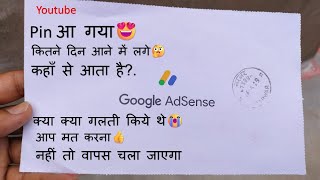 Youtube
Pin आ गया😍
कितने दिन आने में लगे🤔
कहाँ से आता है?.
Google AdSense
क्या क्या गलती किये थे😭
आप मत करना👍
नहीं तो वापस चला जाएगा